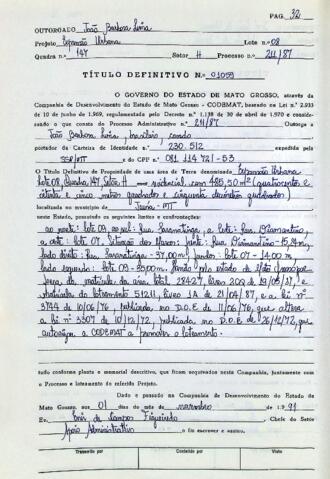 PAG 32
OUTORGADO João Barbosa Lima
Projeto Expansão Urbana Lote n.o 08
Quadra n.o 147 Setor H Processo n.o 211/87
TÍTULO DEFINITIVO N.o 01059
O GOVERNO DO ESTADO DE MATO GROSSO, através da
Companhia de Desenvolvimento do Estado de Mato Grosso - CODEMAT, baseado na Lei n.o 2.933
de 10 de junho de 1.969, regulamentada pelo Decreto n.o 1.138 de 30 de abril de 1.970 e considerando
o que consta do Processo Administrativo n.o 211/87 Outorga a
João Barbosa Lima, brasileiro, casado
portador da Carteira de Identidade n.o 230.512 expedida pela
SSP/MT e do CPF n.o 081 114 721-53
O Título Definitivo de Propriedade de uma área de Terra denominada Expansão Urbana
Lote 08, Quadra 147, Setor H residencial, com 485,50 m² (quatrocentos e
oitenta e cinco metros quadrados e cinquenta decímetros quadrados)
localizada no município de Juína - MT
neste Estado, possuindo os seguintes limites e confrontações:
ao norte: lote 09, ao sul: Rua Paranatinga, a leste: Rua Diamantino,
a oeste lote 07. Situação dos Marcos: frente: Rua Diamantino - 15,24 m,
lado direito: Rua Paranatinga - 37,00 m, fundos: lote 07 - 14,00 m
lado esquerdo: lote 09 - 35,00 m.
matrícula da área total 28427, livro 2 de 19/05/87, e
matrícula do loteamento 51211, livro 1A de 21/04/87, e a lei nº
3744 de 10/06/76, publicada no D.O.E de 11/06/76, que altera
a lei nº 3307 de 10/12/72, publicada no D.O.E de 26/12/72, que
autoriza a CODEMAT a promover o loteamento.
tudo conforme planta e memorial descritivo, que ficam arquivados nesta Companhia, juntamente com
o Processo e loteamento do referido Projeto.
Dado e passado na Companhia de Desenvolvimento do Estado de
Mato Grosso, aos 01 dias do mês de novembro de 1.991
Eu, de Campos Figueiredo Chefe do Setor
Apoio Administrativo o fiz escrever e assino.
Transcrito por Conferido por Visto